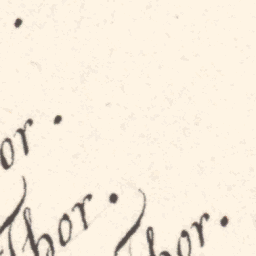 or.
Thor.
Thor.